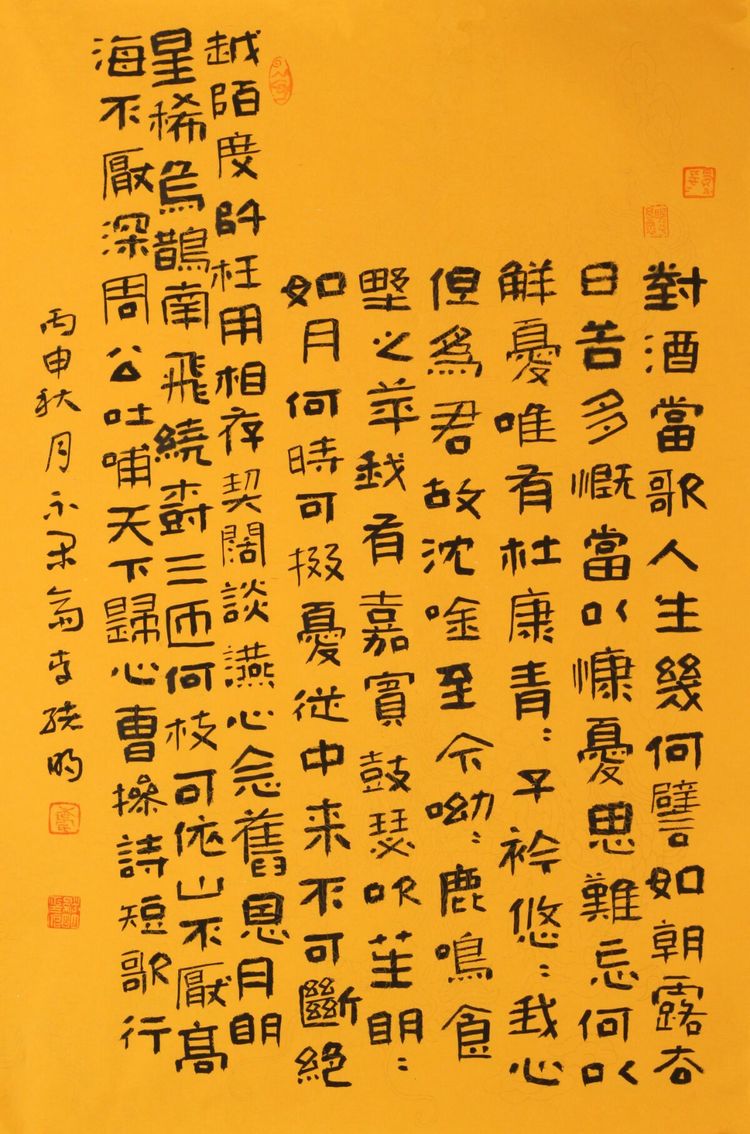 對酒當歌人生幾何譬如朝露去
日苦多慨當以慷憂思難忘何以
觧憂唯有杜康青:子衿悠:我心
但爲君故沈唫至今呦:鹿鳴食
野之苹我有嘉賓鼓瑟吹笙明:
如月何時可掇憂從中来不可斷絕
越陌度阡枉用相存契闊談讌心念舊恩月明
星稀烏鵲南飛繞樹三匝何枝可依山不厭高
海不厭深周公吐哺天下歸心曹操詩短歌行
丙申秋月翁李明